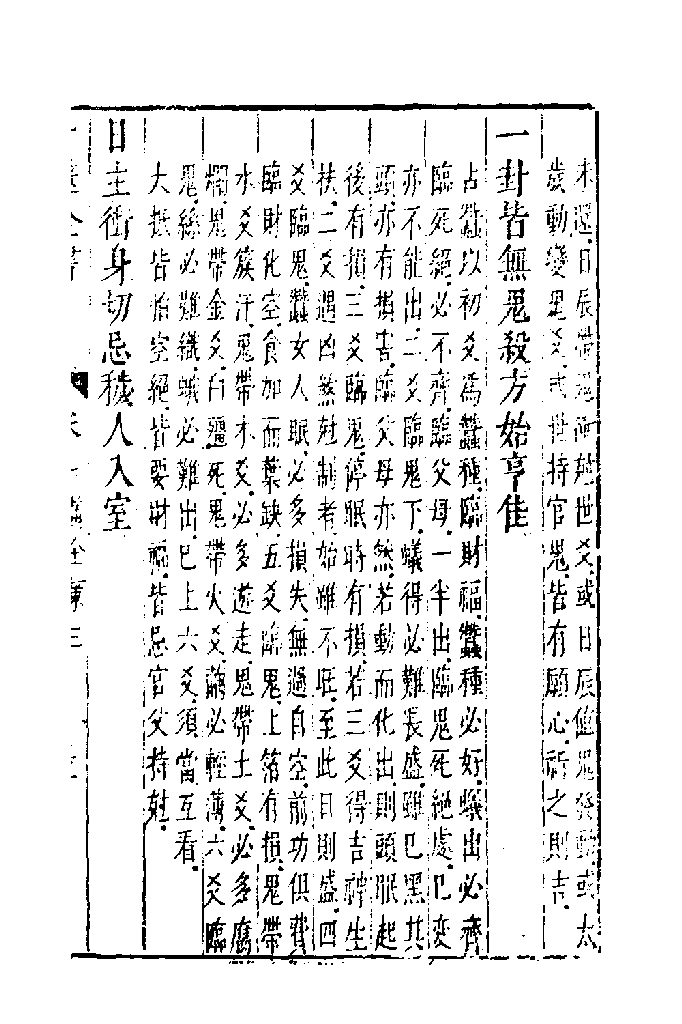 未還日辰帶鬼冲尅世爻或日辰值鬼發動或太
歲動變鬼爻或世持官鬼皆有願心祈之則吉
一卦皆無鬼殺方始亨佳
占蠶以初爻爲蠶種臨財福蠶種必好蟻出必齊
臨死絕必不齊臨父母一半出臨鬼死絕處巳变
亦不能出二爻臨鬼下蟻得必難長盛雖巳黑其
頭亦有損害臨父母亦然若動而化出則頭眠起
後有損三爻臨鬼停眠時有損若三爻得吉神生
扶二爻遇凶煞尅制者始雖不旺至此日則盛四
爻臨鬼蠶女人眠必多損失無過自空前功俱費
臨財化空食加而葉缺五爻臨鬼上箔有損鬼帶
水爻簇汗鬼帶木爻必多遊走鬼帶土爻必多腐
爛鬼帶金爻白殭死鬼帶火爻繭必輕薄六爻臨
鬼絲必難繅蛾必難出巳上六爻須當互看
大抵皆怕空絕皆要財福皆忌官父持尅
日主衝身切忌穢人入室